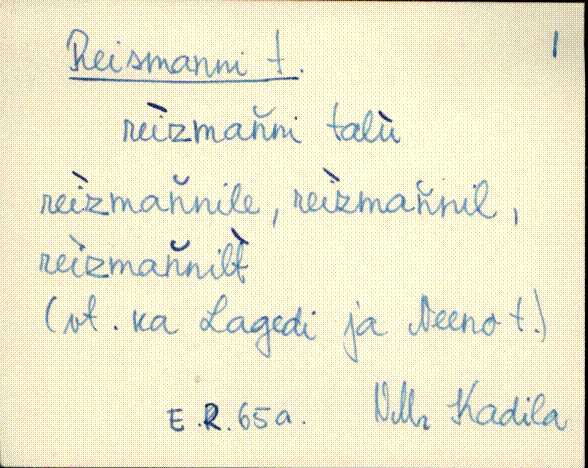 Reismanni t. 1
rèizmaňni talù
rèizmaňnile, rèizmaňnil,
rèizmaňnilt̀
(vt. ka Lagedi ja Neeno t.)
E.R. 65a. Kadila